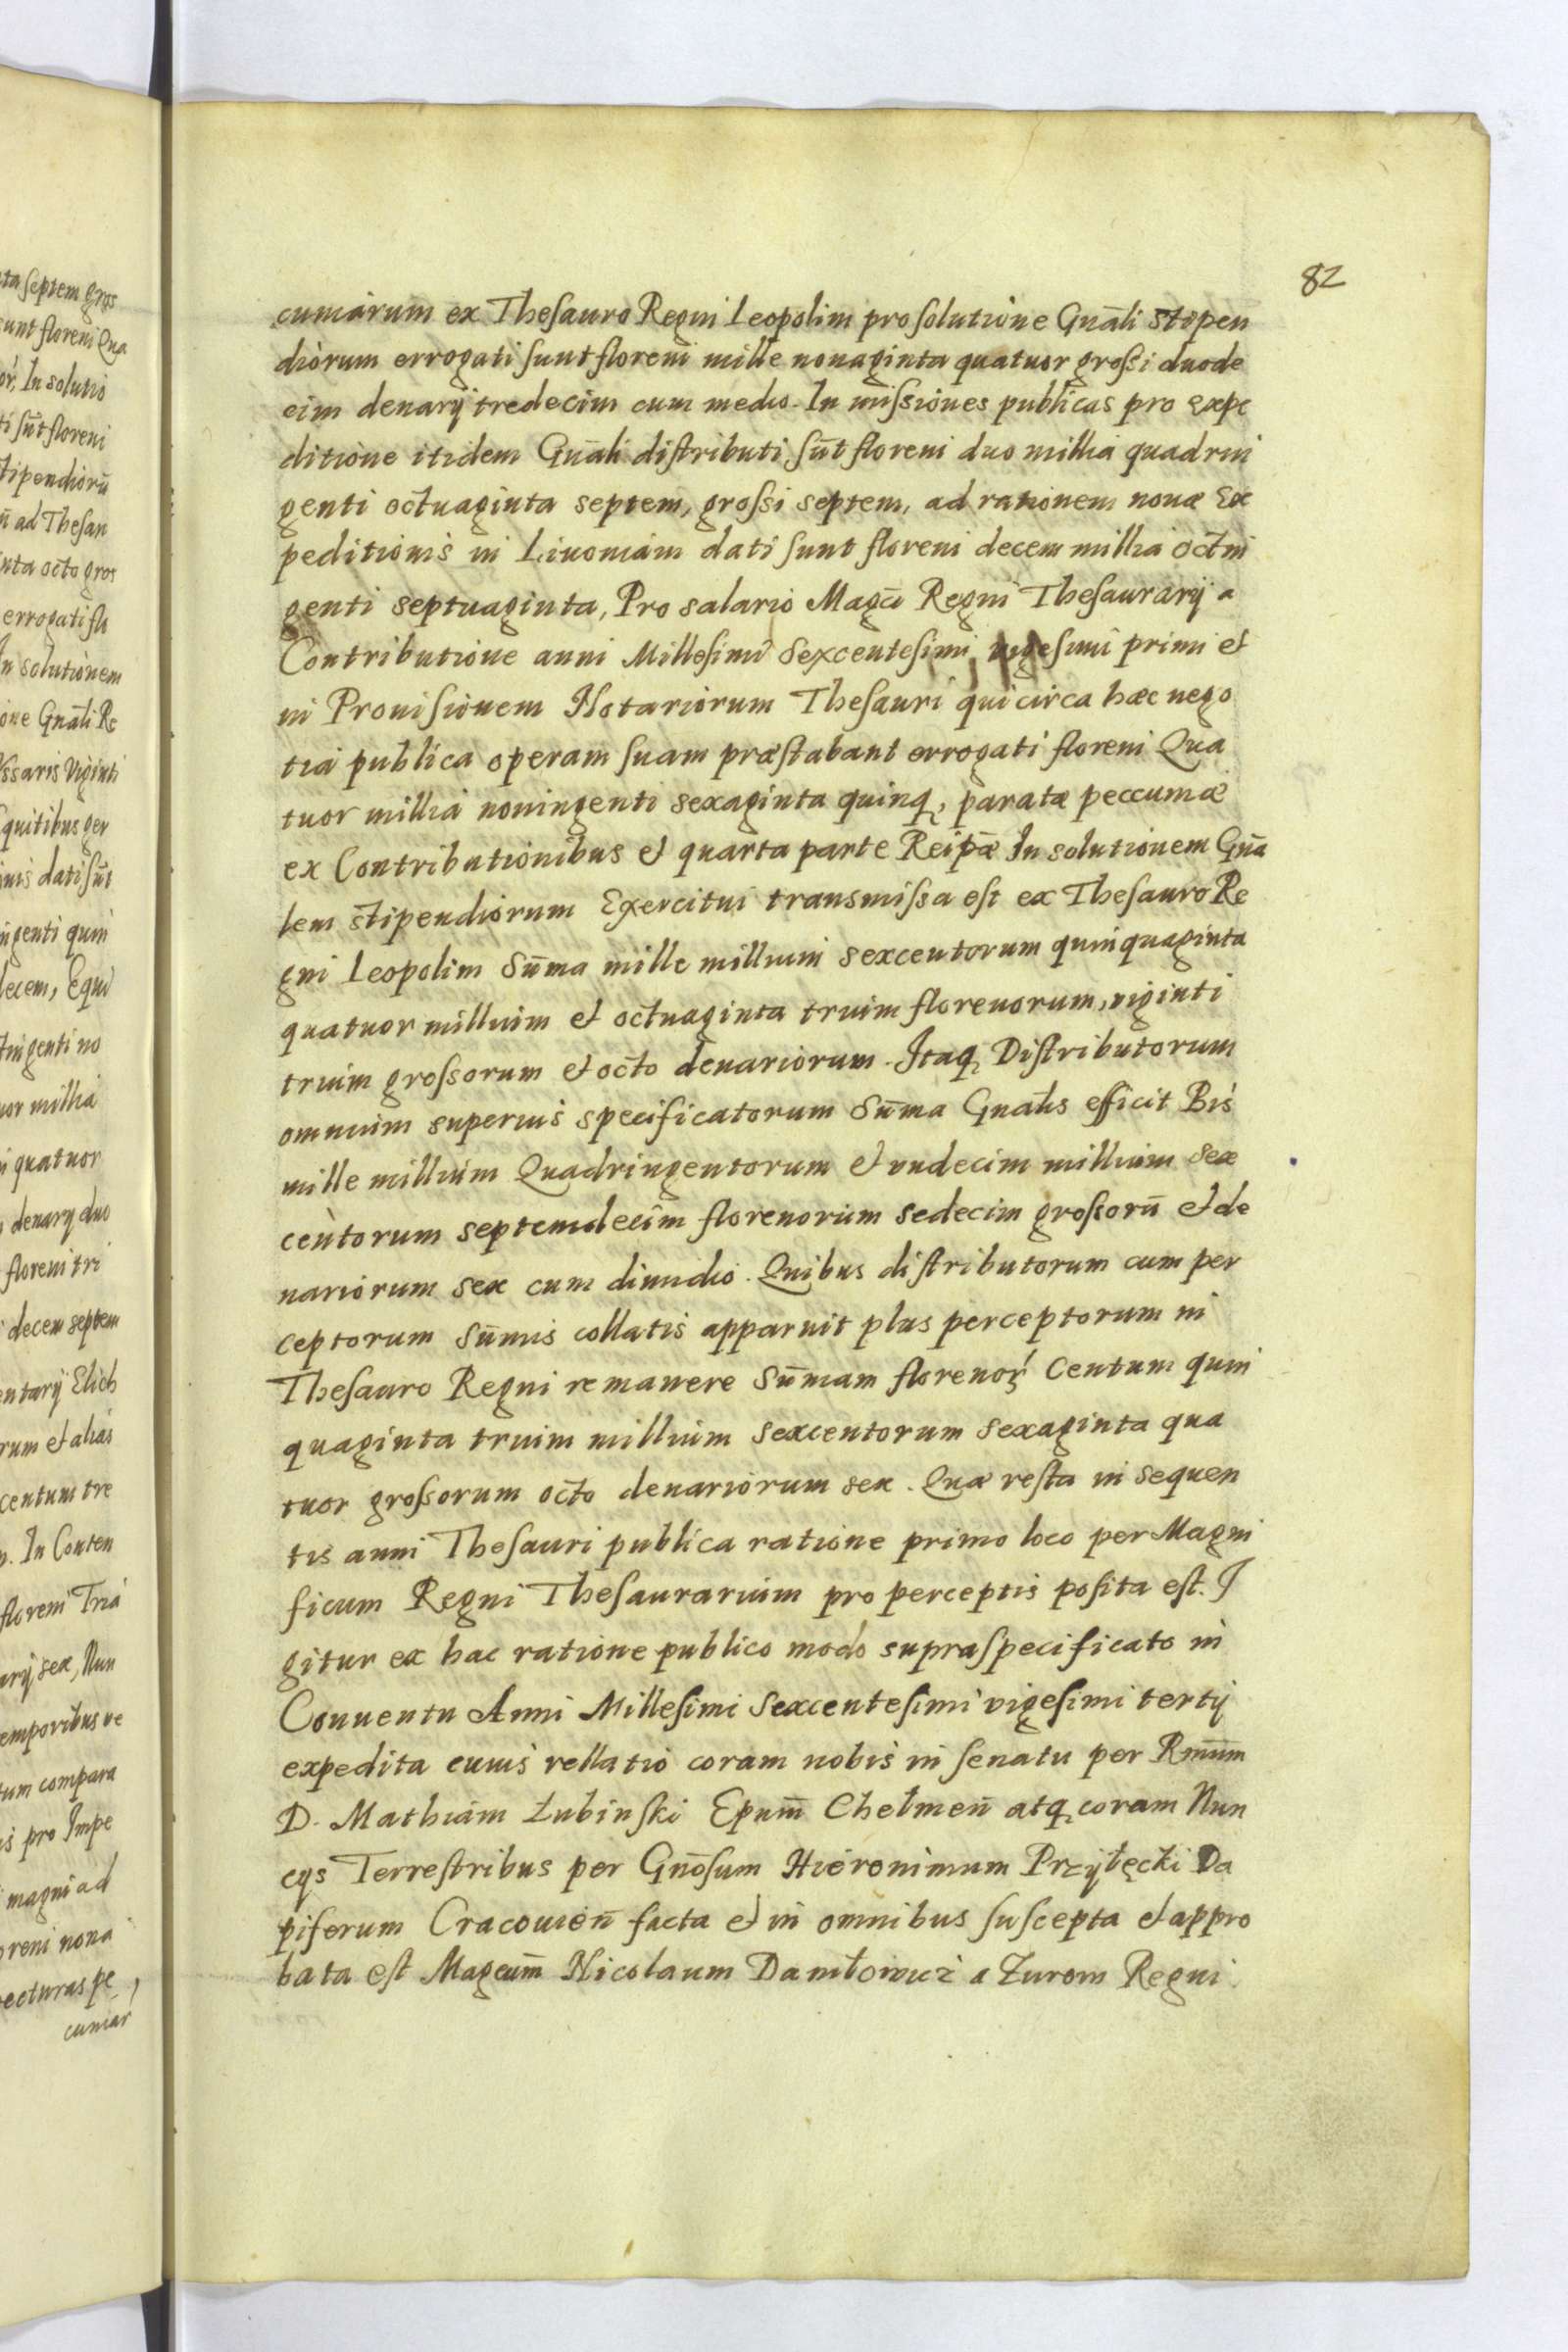 82
cumarum ex Thesauro Regni Leopolim pro solutione Gnāli stipen
diorum errogati sunt floreni mille nonaginta quatuor grossi duode
cim denarij tredecim cum medio. In missiones publicas pro expe
ditione itidem Gnāli distributi sūt floreni duo millia quadrin
genti octuaginta septem, grossi septem, ad rationem novæ Ex
peditionis in Livoniam dati sunt floreni decem millia octin
genti septuaginta, Pro salario Magci Regni Thesaurarij a
Contributione anni Millesimi Sexcentesimi vigesimi primi et
in Provisionem Notariorum Thesauri qui circa hæc nego
tia publica operam suam præstabant errogati floreni Qua
tuor millia noningenti sexaginta quinq, paratæ peccumiæ
ex Contributionibus et quarta parte Reipæ In solutionem Gnā
lem stipendiorum Exercitui transmissa est ex Thesauro Re
gni Leopolim Sūma mille millium sexcentorum quinquaginta
quatuor millium et octuaginta trium florenorum, viginti
trium grossorum et octo denariorum. Itaq Distributorum
omnium superius specificatorum Sūma Gnalis efficit Bis
mille millium Quadringentorum et undecim millium sex
centorum septemdecim florenorum sedecim grossorū et de
nariorum sex cum dimidio. Quibus distributorum cum per
ceptorum Sūmis collatis apparuit plus perceptorum in
Thesauro Regni remanere Sūmam florenoꝝ Centum quin
quaginta trium millium sexcentorum sexaginta qua
tuor grossorum octo denariorum sex. Quæ resta in sequen
tis anni Thesauri publica ratione primo loco per Magni
ficum Regni Thesaurarium pro perceptis posita est. I
gitur ex hac ratione publico modo supraspecificato in
Conventu Anni Millesimi Sexcentesimi vigesimi tertij
expedita cuius rellatio coram nobis in senatu per Rmūm
D. Mathiam Łubinski Epum̄ Chełmen̄ atq coram Nun
cys Terrestribus per Gnōsum Hieronimum Przyłęcki Da
piferum Cracovien̄ facta et in omnibus suscepta et appro
bata est Magcum̄ Nicolaum Daniłowicz a Zurow Regni